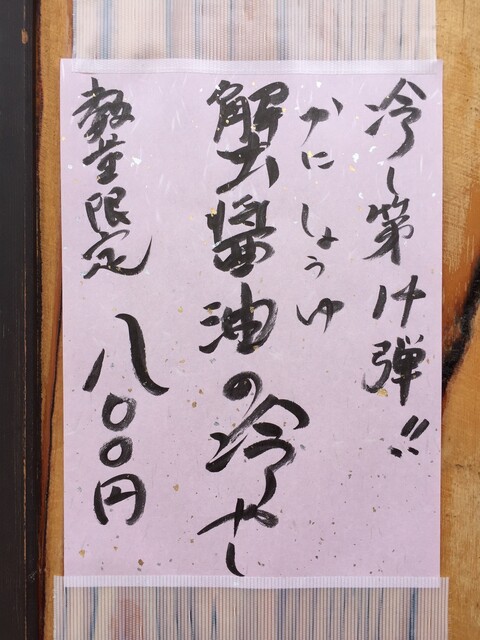 冷し第14弾!!
かにしょうゆ
蟹醤油の冷やし
数量限定 八〇〇円